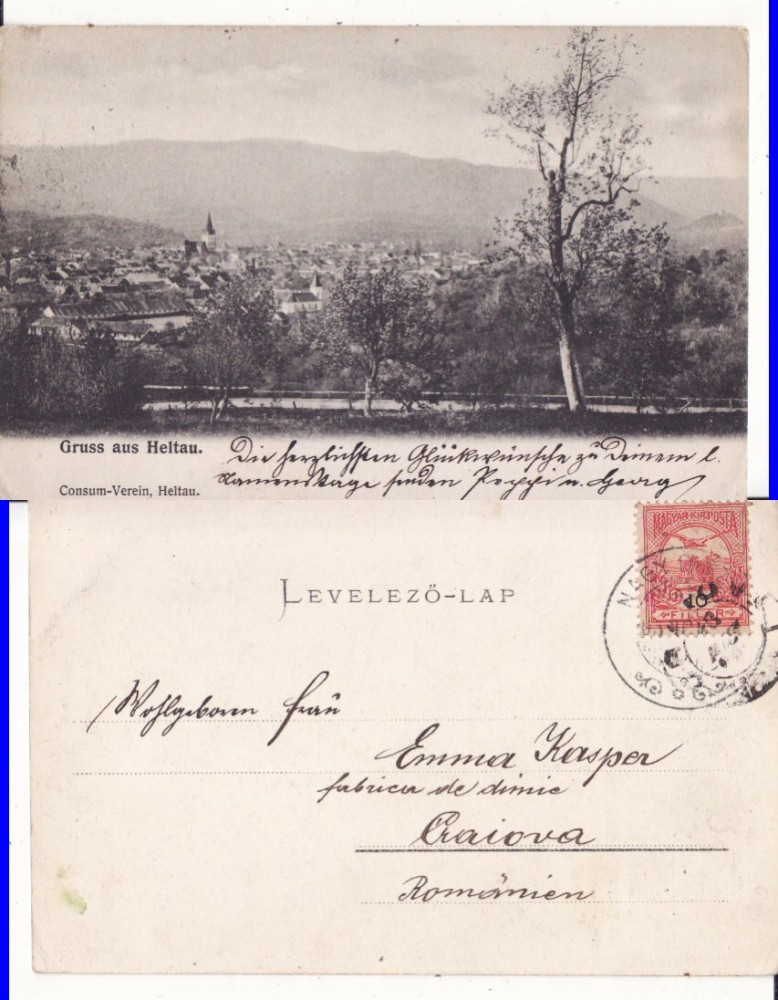 Gruss aus Heltau.
Die herzlichsten Glückwünsche zu Deinem l.
Namenstage senden Peppi u. Georg
Consum-Verein, Heltau.
MAGYAR·KIR·POSTA
10
FILLÉR
NAGY
LEVELEZŐ-LAP
Wohlgeboren Frau
Emma Kasper
fabrica de dimie
Craiova
Românien